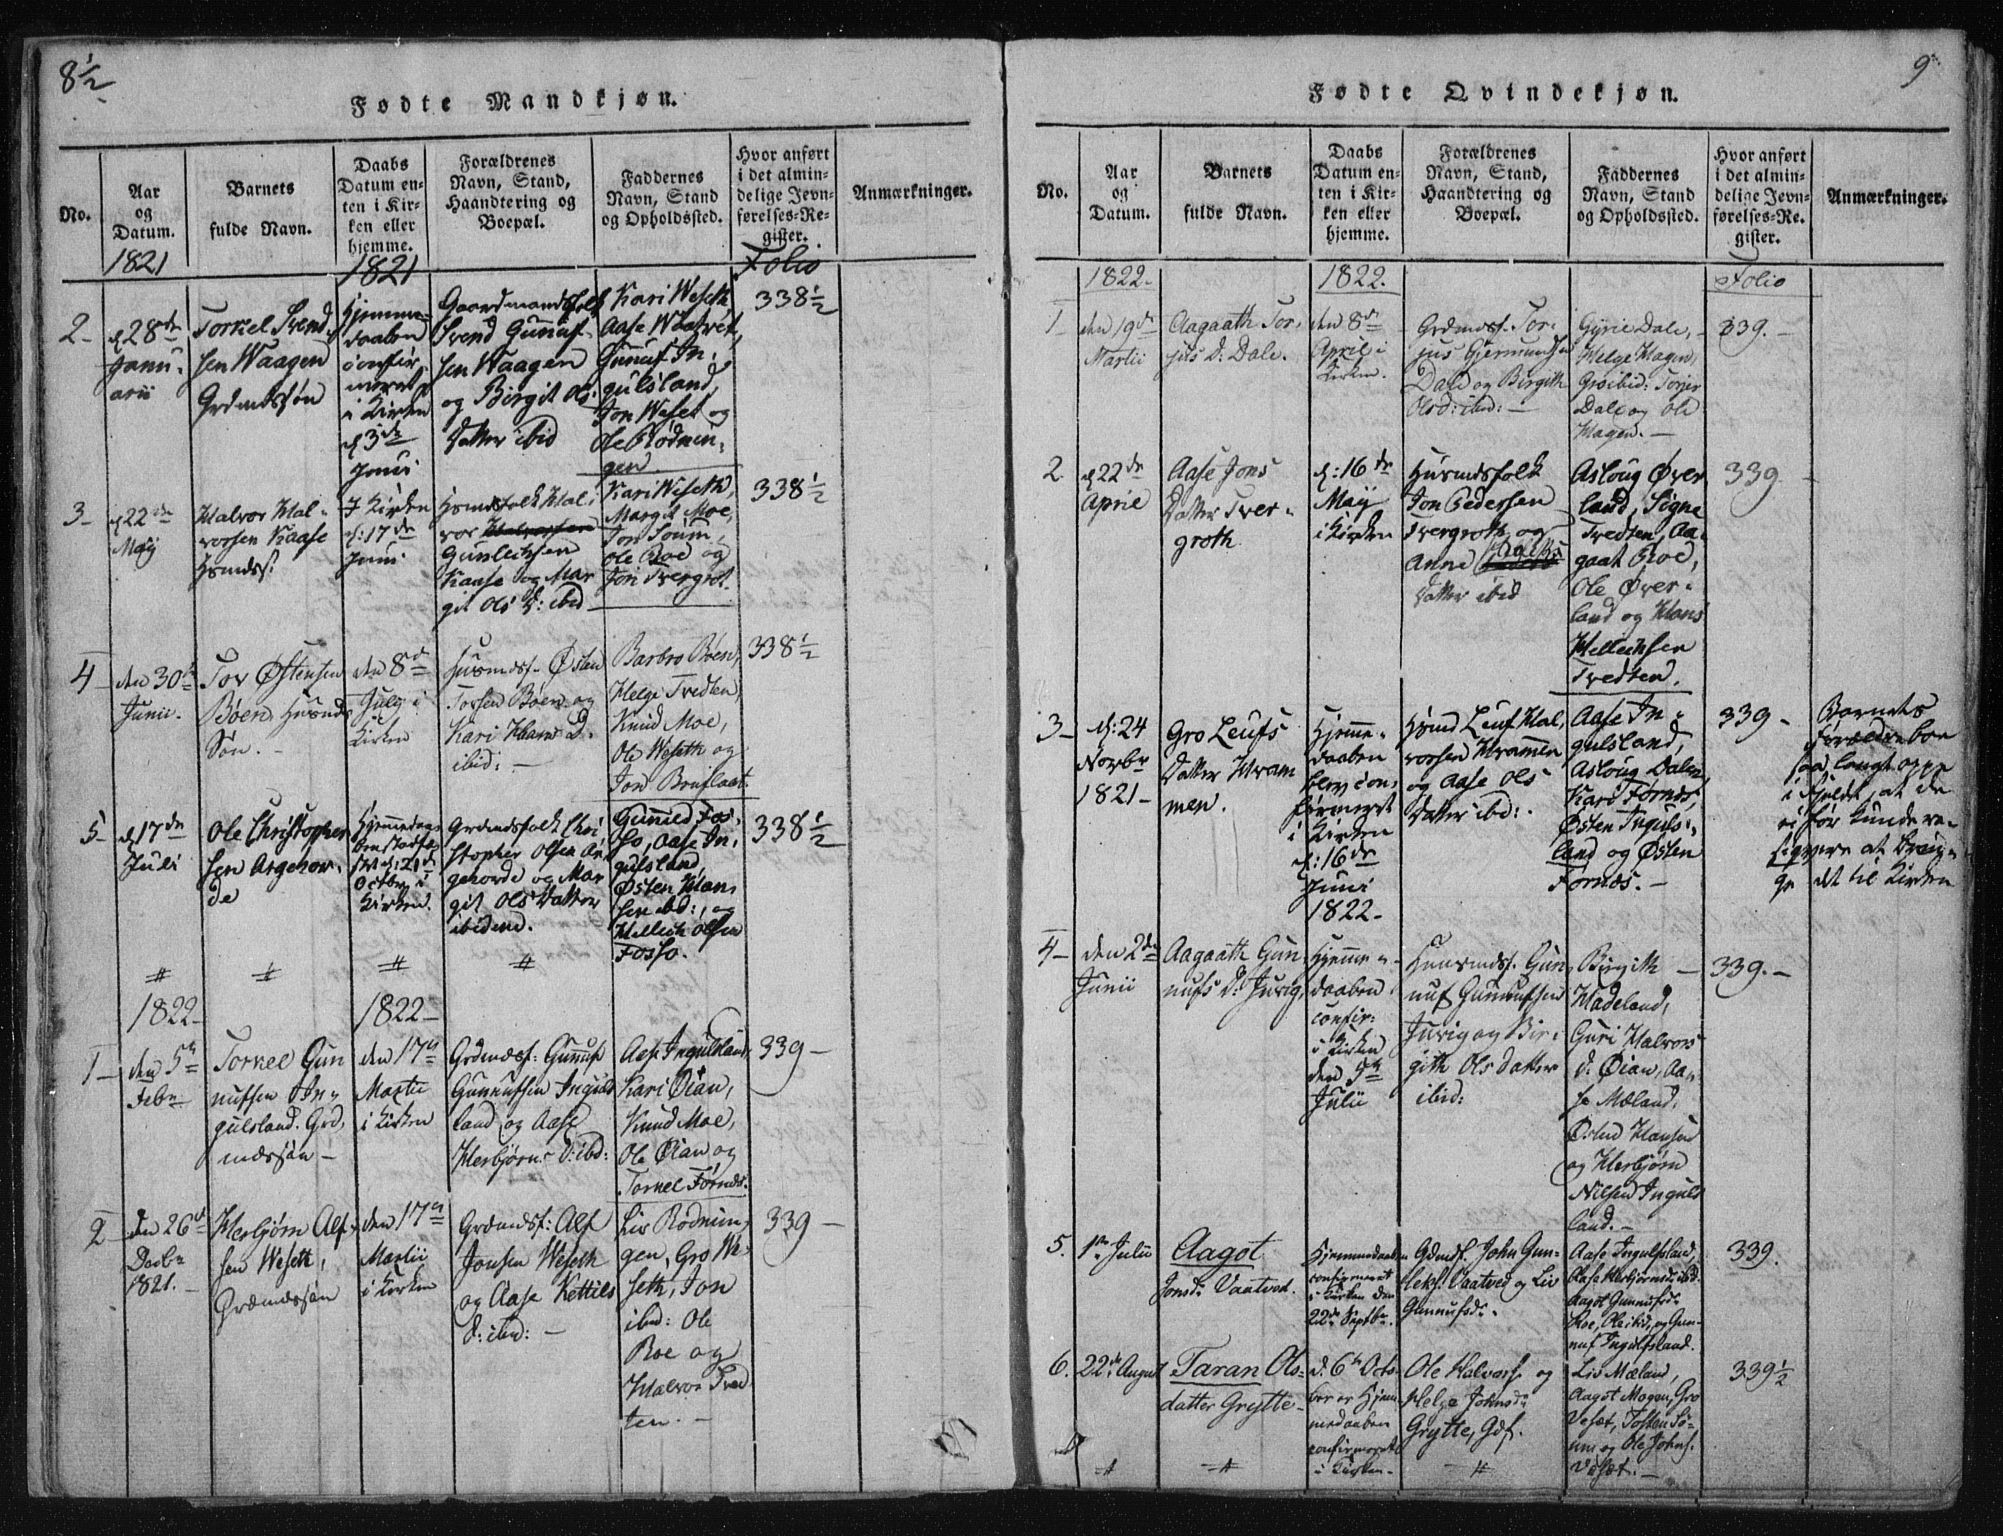 8 1/2
Fødte Mandkjøn.
No.
Aar
og
Datum.
Barnets
fulde Navn.
Daabs
Datum en-
ten i Kir-
ken eller
hjemme.
Forældrenes
Navn, Stand,
Haandtering og
Boepæl.
Faddernes
Navn, Stand
og Opholdssted.
Hvor anført
i det almin-
delige Jevn-
førelses-Re-
gister.
Anmærkninger.
1821
1821
Folio
2-
d. 28de
Janu-
arii
Torkel Svend-
sen Waagen
Grdmdssøn
Hjemme-
daaben
confir-
meret
i Kirken
d. 3de
Juni
Gaardmandsfolk
Svend Gunuf-
sen Waagen
og Birgit Ols-
Datter ibid
Kari Weseth
Aase Waatvet,
Gunuf In-
gulsland,
Jon Weset og
Ole Rødnin-
gen.
338 1/2
3-
d. 22de
Maij
Halvor Hal-
vorsen Kaase
Hsmdss.
I Kirken
d: 17de
Juni
Hsmdsfolk Hal-
vor Halvorsen
Gunleiksen
Kaase og Mar
git Ols D: ibid
Kari Weseth,
Margit Moe,
Jon Soum,
Ole Roe og
Jon Tvergrot.
338 1/2
4-
den 30te
Junii.
Tov Østensen
Bøen Husmds
Søn. -
den 8de
July i
Kirken
Husmdsf. Østen
Torsen Bøen og
Kari Hans D.
ibid: -
Barbro Bøen,
Helge Tvedten,
Knud Moe,
Ole Weseth og
Jon Bruflaat.
338 1/2
5-
d. 17de
Juli
Ole Christopher
sen Argehov-
de
Hjemmedaa-
ben stadfæ-
stet d: 21de
Octbr i
Kirken.
Grdmdsfolk Chri-
stopher Olsen Ar-
gehovde og Mar
git Ols Datter
ibidem.
Gunild Fos-
so, Aase In-
gulsland,
Østen Han-
sen ibd:, og
Kittil Olsen
Fosso.
338 1/2
1822-
1822-
1-
den 5te
Febr
Torkel Gun
nufsen In-
gulsland. Grd,
mdssøn -
den 17de
Martii
i Kirken
Grdmdsf: Gunnuf
Gunnufsen Inguls
land og Aase
Herbjørns D: ibd:
Aase Ingulsland,
Kari Øian,
Knud Moe,
Ole Øian og
Torkel Førnds.
339 -
2-
den 26de
Decbr
1821. -
Herbjørn Alf-
sen Weseth,
Grdmdssøn
den 17de
Martii
i Kirken
Grdmdsf: Alf
Jonsen Weseth
og Aase Kettils
D: ibid: -
Liv Rodnin,
gen, Gro We-
seth, Jon
ibid: Ole
Roe og
Halvor Tved
ten. -
339 -
9
Fødte Qvindekjøn.
No.
Aar
og
Datum.
Barnets
fulde Navn.
Daabs
Datum en-
ten i Kir-
ken eller
hjemme.
Forældrenes
Navn, Stand,
Haandtering og
Boepæl.
Faddernes
Navn, Stand
og Opholdssted.
Hvor anført
i det almin-
delige Jevn-
førelses-Re-
gister.
Anmærkninger.
1822-
1822.
Folio
1-
den 19de
Martii
Aagaath Tor-
jus D: Dale.
den 8de
April i
Kirken.
Grdmdsf. Tor-
jus Gjermunds:
Dale og Birgith
Olsd: ibid: -
Gyrie Dale,
Helge Hagen,
Gro ibid: Torjer
Dale og Ole
Hagen. -
339. -
2
d. 22de
April
Aase Jons
Datter Tver-
groth
d: 16de
Maij
i Kirken
Husmdsfolk
Jon Pedersen
Tvergroth og
Anne
Datter ibid
Asloug Øver
land, Signe
Tvedten, Aa-
gaat Roe,
Ole Øver-
land og Hans
Kittilsen
Tvedten.
339 -
3-
d: 24
Novbr
1821-
Gro Leufs
Datter Hvam
men.
Hjemme-
daaben
blev con-
firmeret
i Kirken
d: 16de
Juni
1822-
Hsmd Leuf Hal,
vorsen Hvammen
og Aase Ols
Datter ibid:
Aase In-
gulsland,
Asloug Dalen,
Kari Førnds,
Østen Inguls-
land og Østen
Førnds. -
339 -
Barnets
Forældre boe
saa langt oppe
i Fjeldet, at de
ei før kunde
at brin-
ge det til Kirken
4-
den 2de
Junii
Aagaath Gun,
nufs D: Juvig,
Hjemme-
daaben
confir:
i Kirken
den 5te
Julii
Huusmdsf. Gun,
nuf Gunnufsen
Juvig og Bir-
gith Ols datter
ibid:
Birgith
Hadeland,
Guri Halvors
d: Øian, Aa-
se Mæland,
Østen Hansen
og Herbjørn
Nilsen Inguls
land. -
339. -
5.
1ste Julii
Aagot
Jonsdr Vaatved.
Hjemmedaaben
confirmeret
i Kirken den
22de Septbr.
Gdmdsf. John Gun-
leks. Vaatved og Liv
Gunnufsdr.
Aase Ingulfsland,
Aase Herbjørnsdr ibid.
Aagot Gunnufsdr
Roe, Ole ibid, og Gun-
nuf Ingulfsland.
339.
6.
22de August
Taran Ols-
datter Grytte-
d. 6te Octo-
ber er Hjem
medaaben
confirmeret
i Kirken-
Ole Halvors. og
Helge Johnsdr
Grytte, Gdf.
Liv Mæland,
Aagot Mogen, Gro
Vesæt, Tosten Sø-
um og Ole Johns.
Vesæt. -
339 1/2